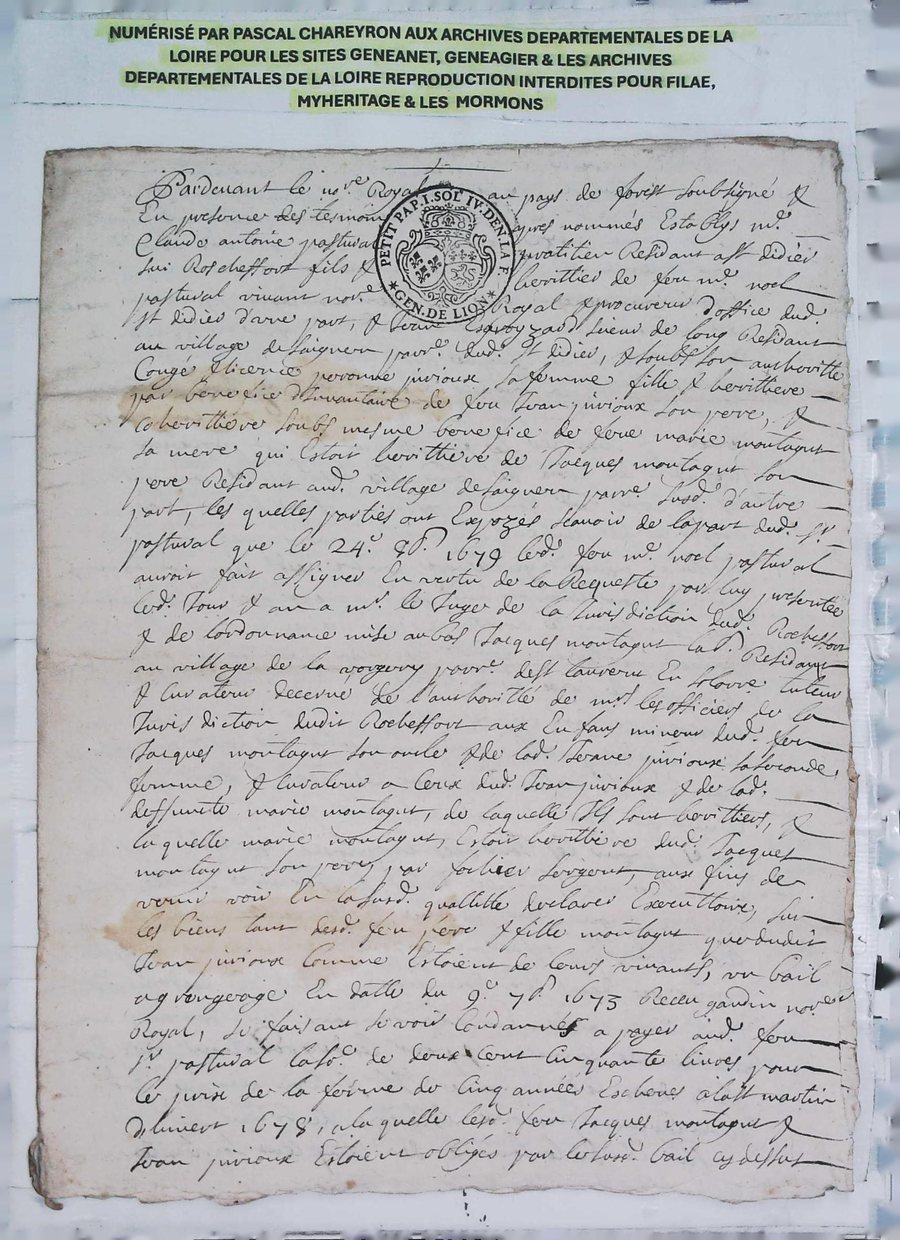 NUMÉRISÉ PAR PASCAL CHAREYRON AUX ARCHIVES DEPARTEMENTALES DE LA
LOIRE POUR LES SITES GENEANET, GENEAGIER & LES ARCHIVES
DEPARTEMENTALES DE LA LOIRE REPRODUCTION INTERDITES POUR FILAE,
MYHERITAGE & LES MORMONS
PETIT PAP. I. SOL IV. DEN. LA F.
GEN. DE LION
Pardevant le no.re Royal au pays de forest soubsigné &
En presence des tesmoins apres nommés Establys m.e
Claude antoine pastural pratitien Residant a st didier
sur Rocheffort fils & herittier de feu m.e noel
pastural vivant no.re Royal & procureur d'office dud.
st didier d'une part, & Jean sieur de long Residant
au village de saignern parr.e dud. st didier, & soubs son authoritté
Congé & licence peronne jurioux sa femme fille & herittiere
par benefice d'Inventaire de feu Jean jurioux son pere, &
coherittiere soubs mesme benefice de feue marie montagut
sa mere qui Estoit herittiere de Jacques montagut son
pere Residant aud. village de saignern parr.e susd. d'autre
part, les quelles parties ont Expozés scavoir de la part dud. s.r
pastural que le 24.e 8.b. 1679 led. feu m.e noel pastural
auroit fait assigner En vertu de la Requeste par luy presentée
led. Jour & an a m.r le Juge de la Jurisdiction dud. Rocheffort
& de lordonnance mise au bas Jacques montagut Residant
au village de la parr.e de st laurent En solorre tuteur
& Curateur decerné de l'authoritté de m.rs les officiers de la
Jurisdiction dudit Rocheffort aux Enfans mineur dud. feu
Jacques montagut son oncle & de lad. Jeane jurioux sa seconde
femme, & Curateur a Ceux dud. Jean jurioux & de lad.
deffunte marie montagut, de laquelle Ils sont herittiers, &
la quelle marie montagut, Estoit herittiere dud. Jacques
montagut son pere, par sergent, aux fins de
venir voir En la susd. quallitté declarer Executtoire, sur
les biens tant desd. feu père & fille montagut que dudit
Jean jurioux Comme Estoient de leurs vivants, un bail
a grangeage En datte du 9.e 7.b. 1673 Receu gardin no.re
Royal, se faisant se voir Condannés a payer aud. feu
s.r pastural la so.e de deux cent Cinquante livres pour
le prix de la ferme de Cinq année Escheues a la st martin
d'hivert 1678, a la quelle lesd. feu Jacques montagut &
Jean jurioux Estoient obligés par le susd. bail cy dessus